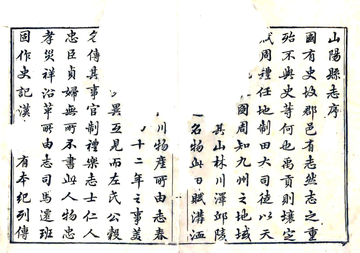 山陽縣志序
國有史故郡邑有志然志之重
殆不與史等何也禹貢則壤定
賦周禮任地制田大司徒以天
圖周知九州之地域
其山林川澤邱陵
名物此曰賦溝洫
川物產所由志春
十二年之事美
異互見而左氏公穀
名傳其事官制禮樂志士仁人
忠臣貞婦無所不書此人物忠
孝災祥沿革所由志司馬遷班
固作史記漢 有本紀列傳